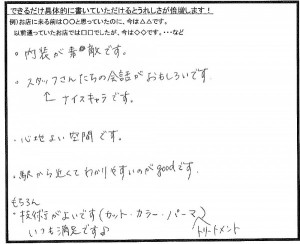 できるだけ具体的に書いていただけるとうれしさが倍増します！
例）お店に来る前は〇〇と思っていたのに、今は△△です。
以前通っていたお店では□□でしたが、今は◇◇です。・・・など
・内装が素敵です。
・スタッフさんたちの会話がおもしろいです。
↑ナイスキャラです。
・心地よい空間です。
・駅から近くてわかりやすいのがgoodです。
もちろん
・技術がよいです（カット・カラー・パーマ）
トリートメント
いつも満足です♪